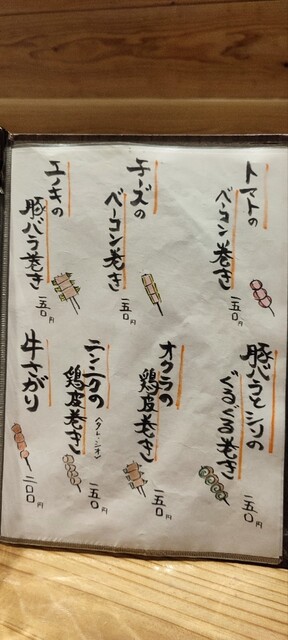 トマトの
ベーコン巻き
一五〇円
チーズの
ベーコン巻き
一五〇円
エノキの
豚バラ巻き
一五〇円
豚バラとシソの
ぐるぐる巻き
一五〇円
オクラの
鶏皮巻き
一五〇円
ニンニクの
鶏皮巻き
(タレ・シオ)
一五〇円
牛さがり
二〇〇円